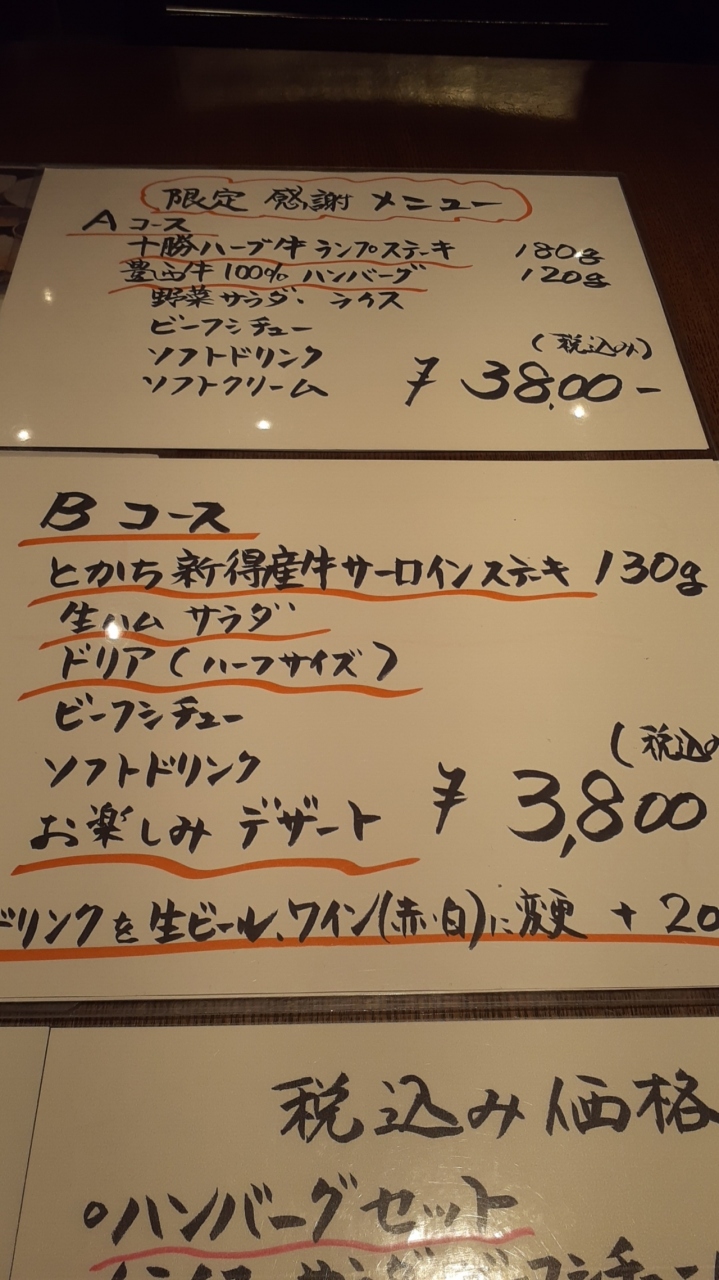 限定 感謝 メニュー
Aコース
十勝ハーブ牛ランプステーキ 180g
豊西牛100%ハンバーグ 120g
野菜サラダ・ライス
ビーフシチュー
ソフトドリンク
(税込み)
ソフトクリーム ¥ 38,00-
Bコース
とかち新得産牛サーロインステーキ 130g
生ハム サラダ
ドリア(ハーフサイズ)
ビーフシチュー
(税込み
ソフトドリンク
¥ 3,800
お楽しみ デザート
ドリンクを生ビール、ワイン(赤・白)に変更 + 20
税込み価格
○ハンバーグセット